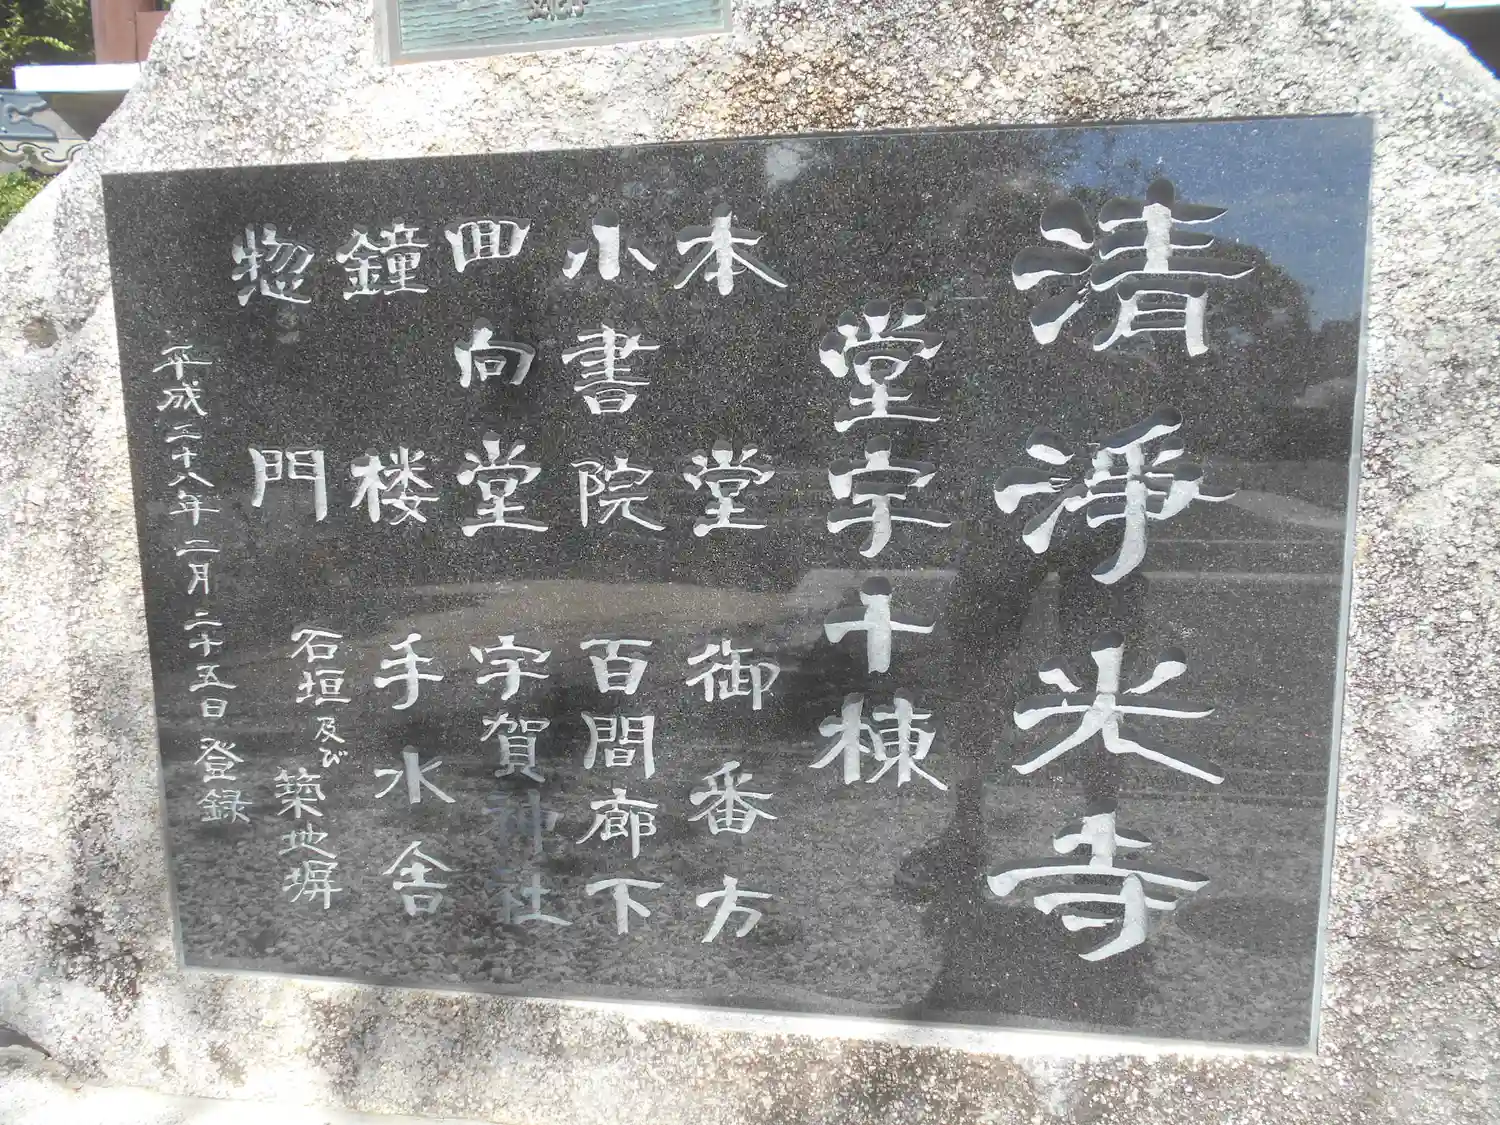 清淨光寺
堂宇十棟
本堂 御番方
小書院 百間廊下
回向堂 宇賀神社
鐘楼 手水舎
惣門 石垣及び築地塀
平成二十八年二月二十五日登録